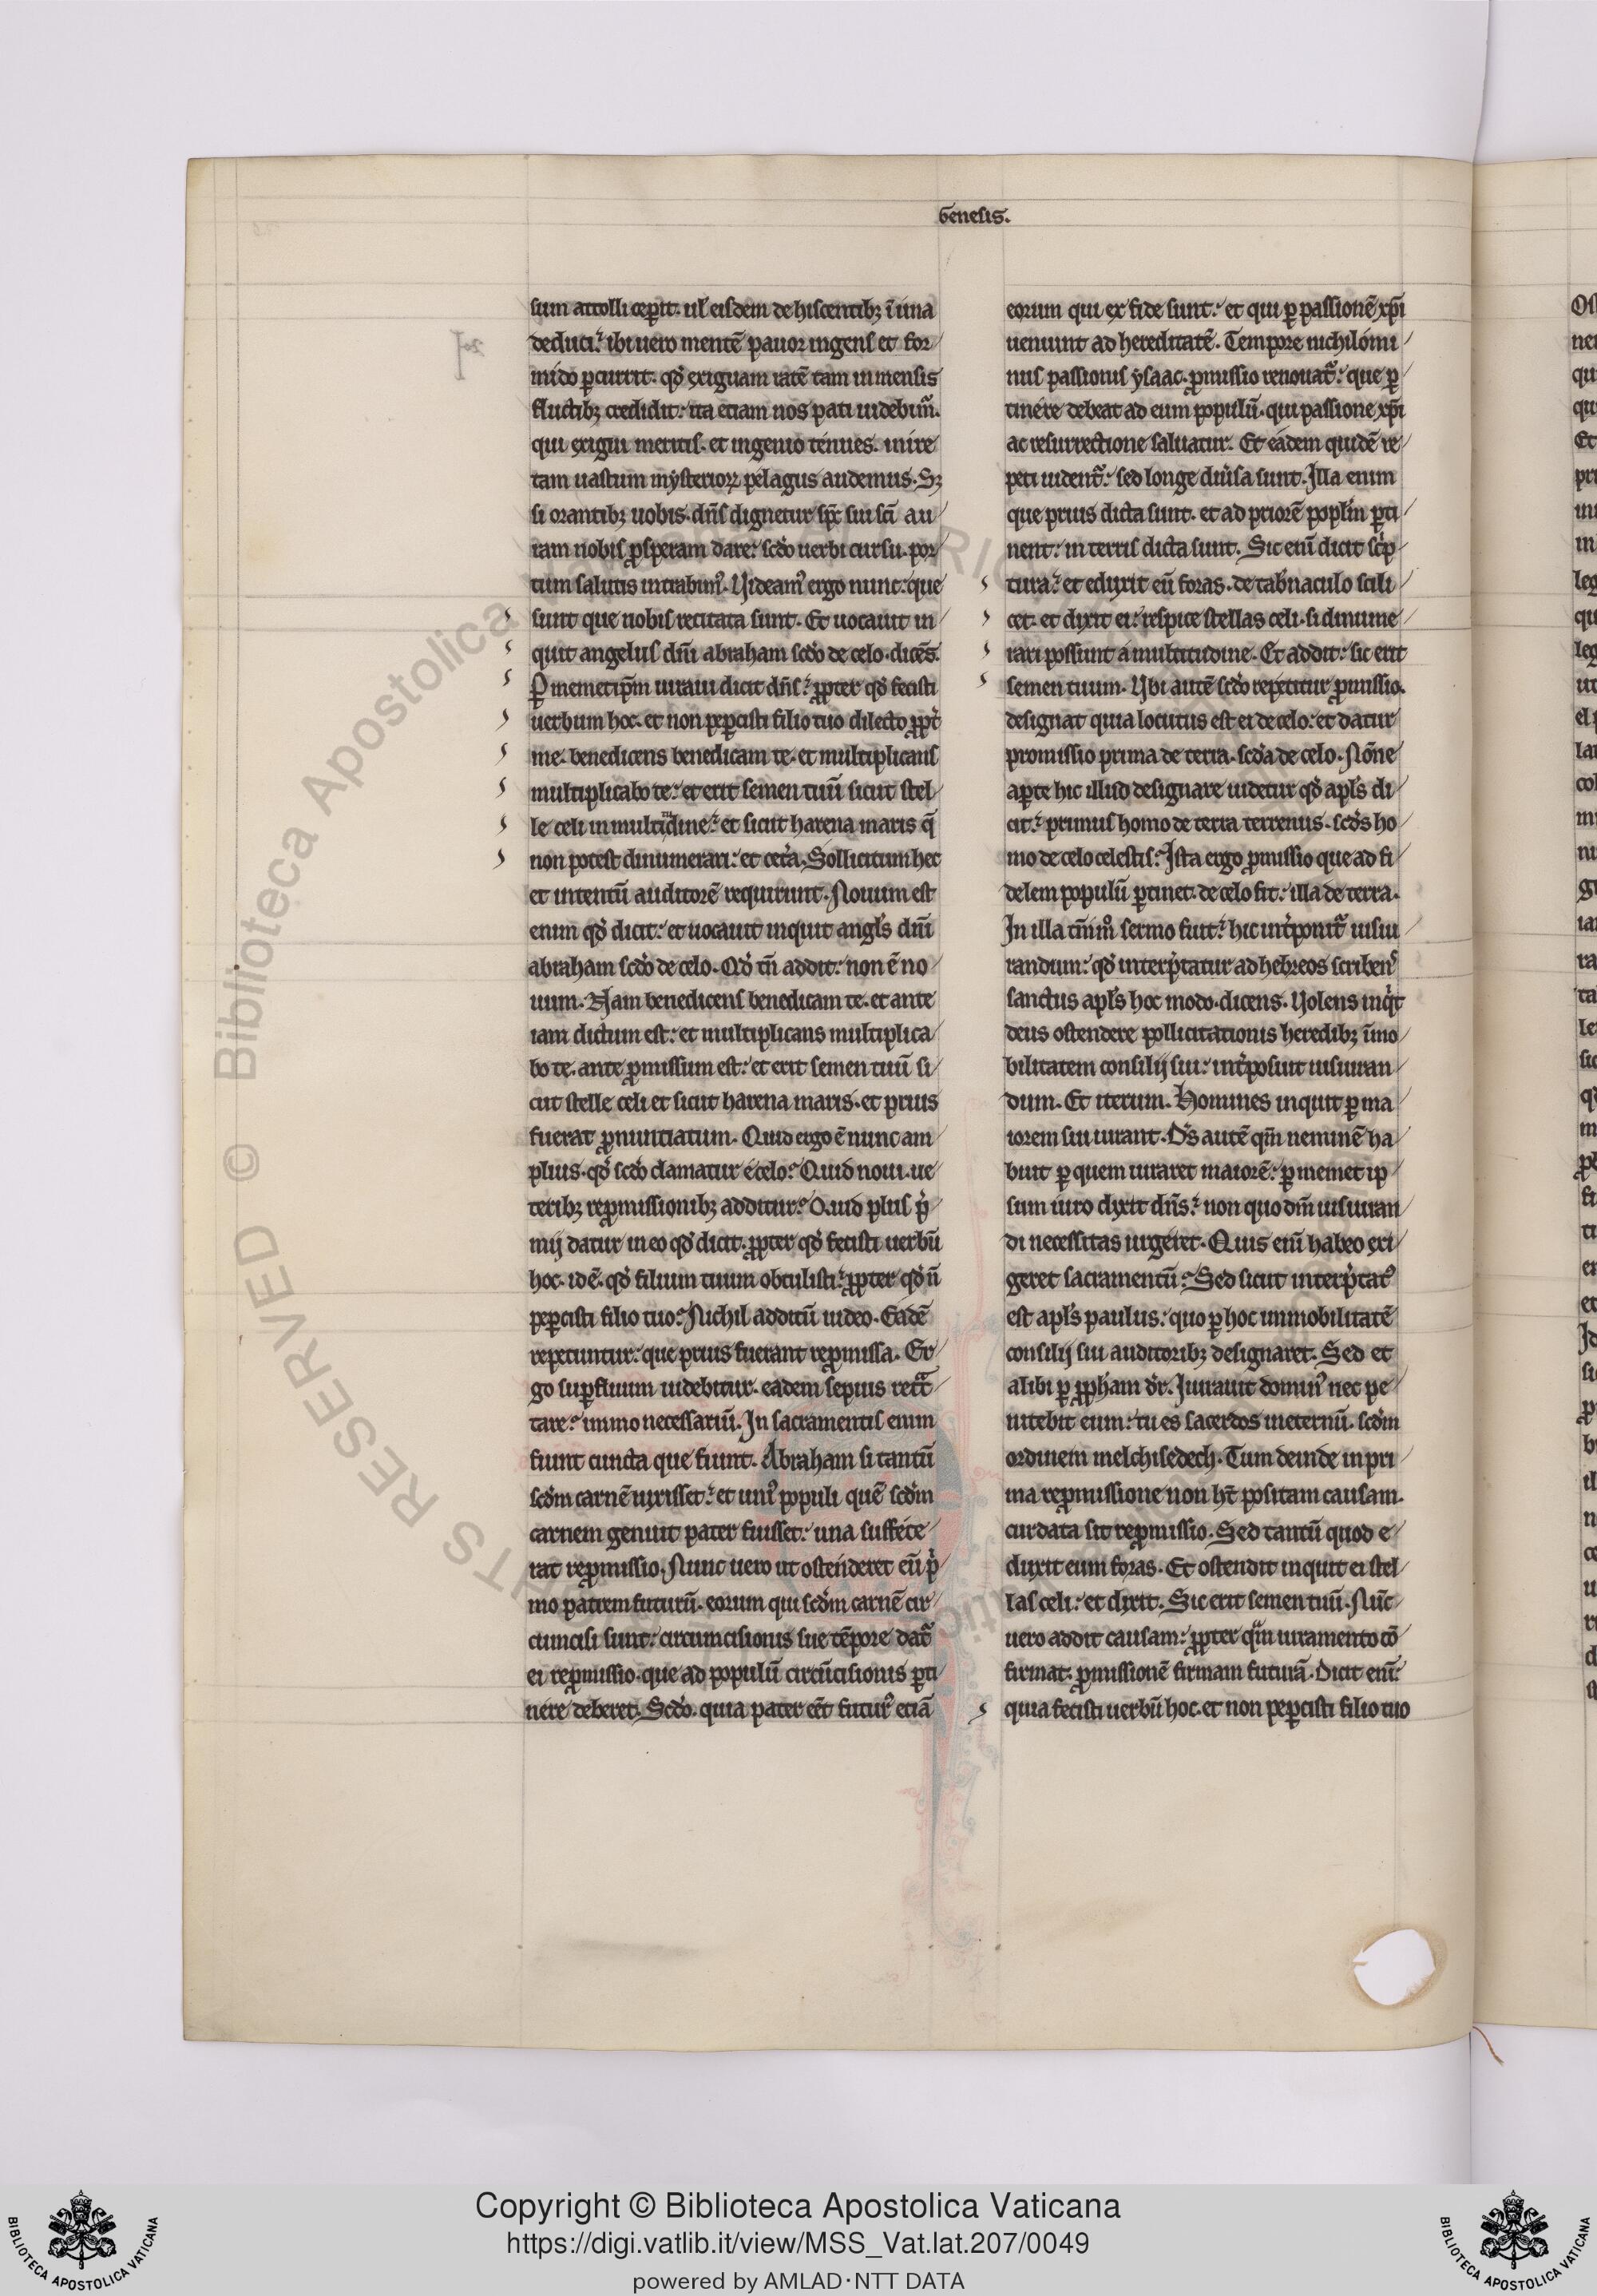 Genesis.
sum attolli ceꝑit. ul' eisdem dehiscentibꝫ ī ima
deduci.' ibi uero mentē pauor ingens et for
mido ꝑcurrit. qđ exiguam ratē tam inmensis
fluctibꝫ credidit.' ita etiam nos pati uidebim̃.
qui exigui meritis. et ingenio tenues. inire
tam uastum mysterioꝝ pelagus audemus. Sꝫ
si orantibꝫ uobis. dñs dignetur sp̃c sui sc̃i au
ram nobis ꝓsperam dare.' sc̃do uerbi cursu. por
tum salutis intrabim᾽. Uideam᾽ ergo nunc.' que
sunt que nobis recitata sunt. Et uocauit in
quit angelus dñi abraham sc̃do de celo. dicẽs.
Ꝑ memetip̃m iuraui dicit dñs.' ꝓpter qđ fecisti
uerbum hoc. et non peꝑcisti filio tuo dilecto ꝓpt̾
me. benedicens benedicam te. et multiplicans
multiplicabo te.' et erit semen tuū sicut stel
le celi in multitudine.' et sicut harena maris q̃
non potest dinumerari.' et cet̾a. Sollicitum hec
et intentū auditorē requirunt. Nouum est
enim qđ dicit.' et uocauit inquit angl's dñi
abraham sc̃do de celo. Qđ tñ addit.' non ē no
uum. Nam benedicens benedicam te. et ante
iam dictum est.' et multiplicans multiplica
bo te. ante ꝓmissum est.' et erit semen tuū si
cut stelle celi et sicut harena maris. et prius
fuerat ꝓnuntiatum. Quid ergo ē nunc am
plius. qđ sc̃do clamatur e celo? Quid noui. ue
teribꝫ reꝓmissionibꝫ additur? Quid plus p̾
mij datur in eo qđ dicit. ꝓpter qđ fecisti uerbū
hoc. id ē. qđ filium tuum obtulisti.' ꝓpter qđ ñ
peꝑcisti filio tuo? Nichil additū uideo. Eadē
repetuntur.' que prius fuerant reꝓmissa. Er
go suꝑfluum uidebitur. eadem sepius retc̃
tare? immo necessariū. In sacramentis enim
fiunt cuncta que fiunt. Abraham si tantū
sc̃dm carnē uixisset.' et uni᾽ populi quē sc̃dm
carnem genuit pater fuisset.' una suffece
rat reꝓmissio. Nunc uero ut ostenderet eū p̾
mo patrem futurū. eorum qui sc̃dm carnē cir
cuncisi sunt.' circumcisionis sue tēpore dat᷑
ei reꝓmissio. que ad populū circūcisionis ꝑti
nere deberet. Sc̃do. quia pater eẽt futur᾽ etiā
eorum qui ex fide sunt.' et qui ꝑ passionē xp̃i
ueniunt ad hereditatē. Tempore nichilomi
nus passionis ysaac. ꝓmissio renouat᷑.' que ꝑ
tinere debeat ad eum populū. qui passione xp̃i
ac resurrectione saluatur. Et eadem quidē re
peti uident᷑.' sed longe diu̾sa sunt. Illa enim
que prius dicta sunt. et ad priorē popl'm ꝑti
nent.' in terris dicta sunt. Sic eni᷑ dicit sc̃p
tura.' et eduxit eū foras. de tab̾naculo scili
cet. et dixit ei.' respice stellas celi. si dinume
rari possunt a multitudine. Et addit.' sic erit
semen tuum. Ubi autē sc̃do repetitur ꝓmissio.
designat quia locutus est ei de celo.' et datur
promissio prima de terra. sc̃da de celo. Nōne
aꝑte hic illud designare uidetur qđ apl's di
cit.' primus homo de terra terrenus. sc̃ds ho
mo de celo celestis.' Ista ergo ꝓmissio que ad fi
delem populū ꝑtinet. de celo fit.' illa de terra.
In illa tm̃m᷑ sermo fuit.' hic int̾ponit᷑ iusiu
randum.' qđ interp̾tatur ad hebreos scriben᾽
sanctus apl's hoc modo. dicens. Uolens inq̾t
deus ostendere pollicitationis heredibꝫ īmo
bilitatem consilij sui.' int̾posuit iusiuran
dum. Et iterum. Homines inquit ꝑ ma
iorem sui iurant. D's autē qm̃ neminē ha
buit ꝑ quem iuraret maiorē.' ꝑ memet ip
sum iuro dixit dñs.' non quo dm̃ iusiuran
di necessitas urgeret. Quis eni᷑ ab eo exi
geret sacramentū? Sed sicut interp̾tat᾽
est apl's paulus.' quo ꝑ hoc immobilitatē
consilij sui auditoribꝫ designaret. Sed et
alibi ꝑ ꝓph̃am dr̃. Iurauit domin᾽ nec pe
nitebit eum.' tu es sacerdos ineternū. sc̃dm
ordinem melchisedech. Tum deinde in pri
ma repromissione non ht̃ positam causam.
cur data sit reꝓmissio. Sed tantū quod e
duxit eum foras. Et ostendit inquit ei stel
las celi.' et dixit. Sic erit semen tuū. Nūc
uero addit causam.' ꝓpter qm̃ iuramento cō
firmat. ꝓmissionē firmam futurā. Dicit eni᷑.'
quia fecisti uerbū hoc. et non peꝑcisti filio tuo
Copyright © Biblioteca Apostolica Vaticana
https://digi.vatlib.it/view/MSS_Vat.lat.207/0049
powered by AMLAD·NTT DATA
BIBLIOTECA APOSTOLICA VATICANA
BIBLIOTECA APOSTOLICA VATICANA